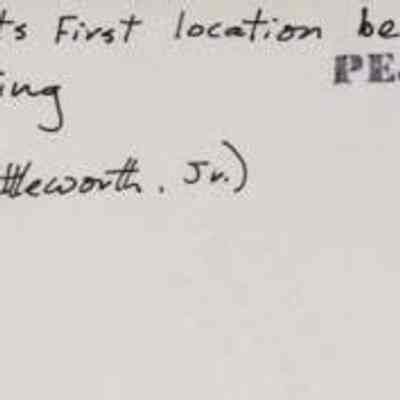 ts First location be
PE
ing
ttleworth. Jr.)